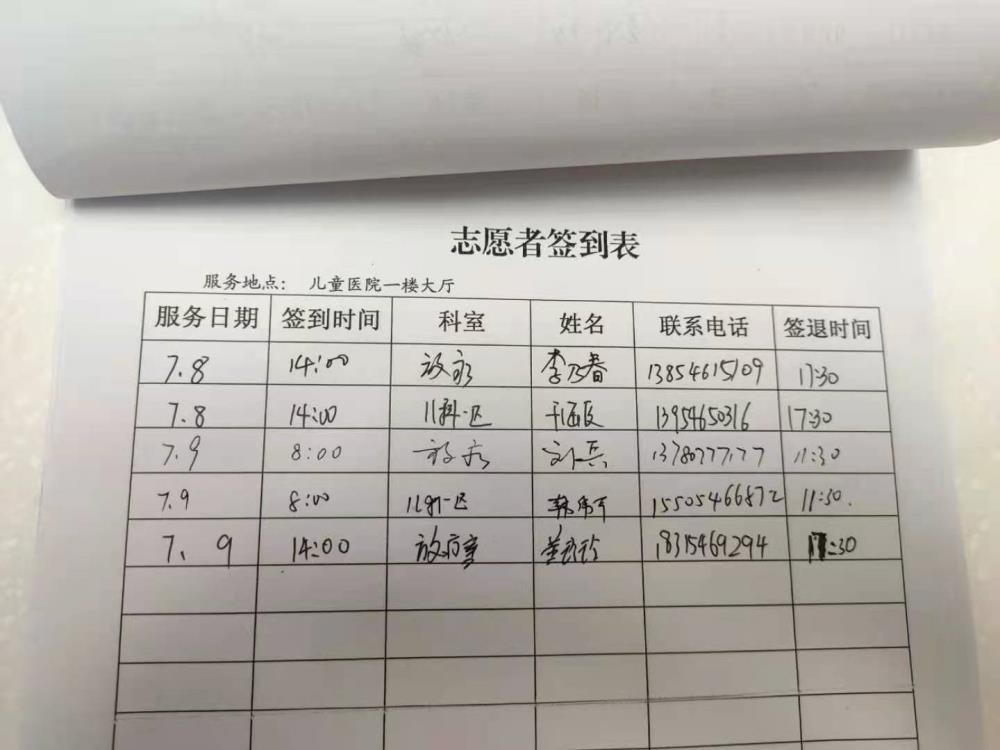 志愿者签到表
服务地点： 儿童医院一楼大厅
服务日期 签到时间 科室 姓名 联系电话 签退时间
7.8 14:00 放疗 李乃春 13854615109 17:30
7.8 14:00 儿科一区 13954650316 17:30
7.9 8:00 放疗 刘兵 13780777177 11:30
7.9 8:00 儿科一区 15505466872 11:30.
7.9 14:00 放疗室 18315469294 17:30